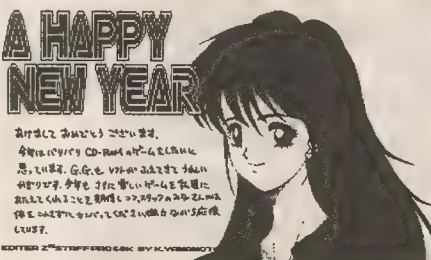 A HAPPY
NEW YEAR
あけまして おめでとう ございます。
今年はバリバリ CD-ROMのゲームをしたいと
思っています。G.G.も ソフトが ふえてきて うれしい
かぎりです。今年も さらに 楽しいゲームを
あたえてくれることを 期待して スタッフのみなさんは
体を こわさずに がんばってください。 ながら応援
しています。
EDITER Z'S STAFF PRO 68K BY K.YAMAMOTO